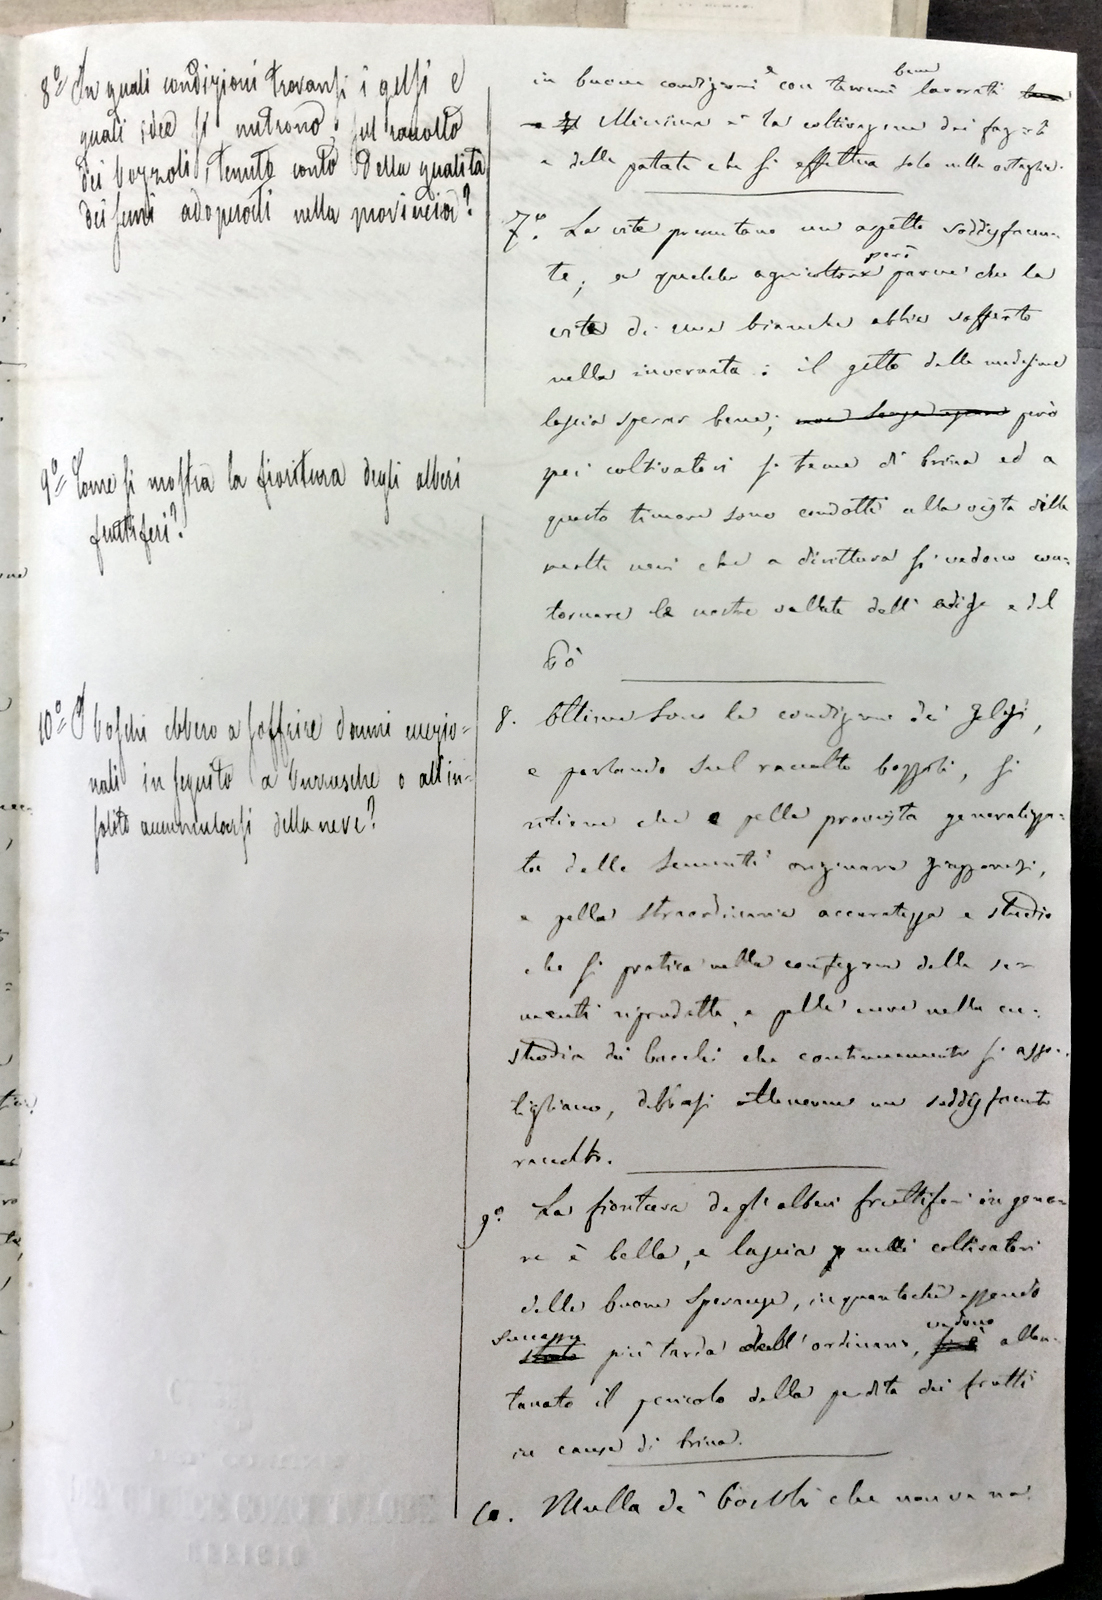 8.º In quali condizioni trovansi i gelsi e
quali idee si nutrono sul raccolto
dei bozzoli, tenuto conto della qualità
dei semi adoperati nella provincia?
9.º Come si mostra la fioritura degli alberi
fruttiferi?
10.º I boschi ebbero a soffrire danni eccezio=
nali in seguito a burrasche o all'in=
solito accumularsi della neve?
in buone condizioni e con terreni bene lavorati
Minima è la coltivazione dei fagioli
e delle patate che si effettua solo nelle ortaglie.
7.º Le vite presentano un aspetto soddisfacen-
te, a qualche agricoltore però parve che la
vite di uva bianche abbia sofferto
nella invernata: il getto delle medesime
lascia sperar bene; però
pei coltivatori si teme di brina ed a
questo timore sono condotti alla vista delle
molte nevi che a dirittura si vedono con-
tornare le nostre vallate dell'Adige e del
Pò
8. Ottime sono le condizioni dei Gelsi,
e parlando sul raccolto bozzoli, si
ritiene che e pella provvista generalizza-
ta delle sementi originarie giapponesi,
e pella straordinaria accuratezza e studio
che si pratica nella confezione delle se-
menti riprodotte, e pelle cure nella cu-
stodia dei bacchi che continuamente si assot-
tigliano, debbasi ottenerne un soddisfacente
raccolto.
9.º La fioritura degli alberi fruttiferi in gene-
re è bella, e lascia nelli coltivatori
delle buone speranze, inquantochè essendo
successa più tarda dell'ordinario, vedono allon-
tanato il pericolo della perdita dei frutti
in causa di brina.
10. Nulla de' boschi che non ve n'à.